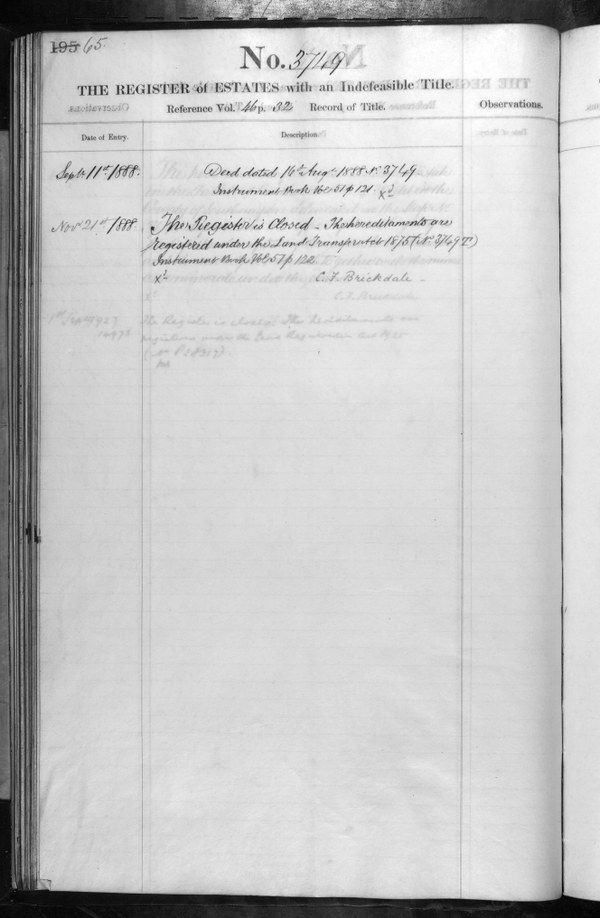 195 65
No. 3749
THE REGISTER of ESTATES with an Indefeasible Title.
Reference Vol. 46 p. 32 Record of Title.
Observations.
Date of Entry.
Description.
Sept. 11th 1888.
Deed dated 16th Augt. 1888. No. 3749
Instrument Book Vol 51 p 121.
Nov 21st 1888
The Register is Closed - The hereditaments are
registered under the Land Transfer Act 1875 (No. 3749 )
Instrument Book Vol 51 p 122
C. F. Brickdale -
The Register is closed. The hereditaments are
registered under the Land Registration Act 1925